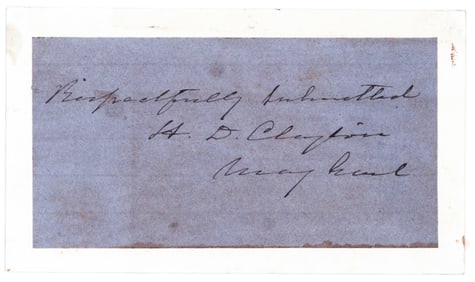 Respectfully Submitted
H. D. Clayton
Maj Genl